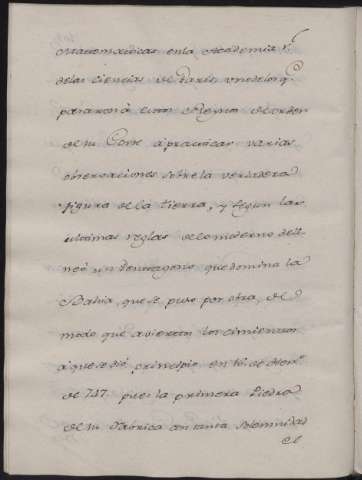 Matematicas en la Academia Rl.
de las ciencias de Paris uno de los q.
pasaron à estos Reynos de orden
de su Corte à practicar varias
observaciones sobre la verdadera
figura de la tierra, y segun las
ultimas reglas de lo moderno deli-
neó un Pentagono que domina la
Bahia, que se puso por obra, de
modo que avierton los cimientos
à que se dió principio en 16. de
de 747. puso la primera Piedra
de su Fabrica con tanta solemnidad
el